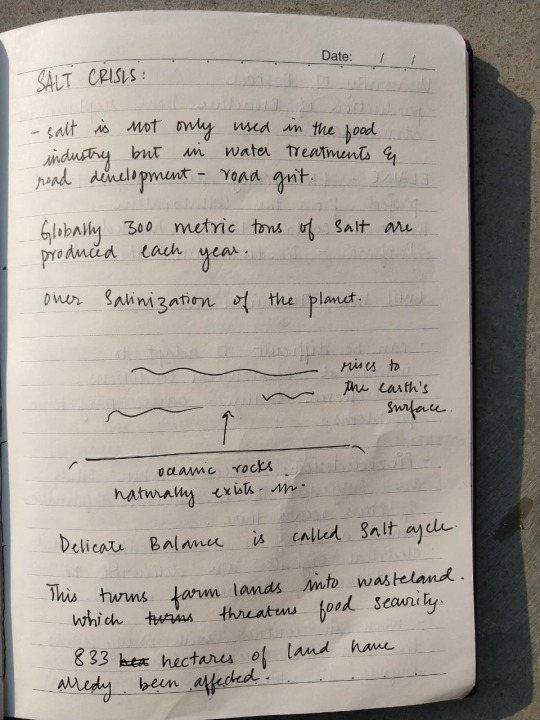 Date: / /
SALT CRISIS:
- salt is not only used in the food
industry but in water treatments &
road development - road grit.
Globally 300 metric tons of salt are
produced each year.
over Salinization of the planet.
rises to
the earth's
surface
oceanic rocks
naturally exists. in.
Delicate Balance is called Salt cycle.
This turns farm lands into wasteland.
which turns threatens food security.
833 hea hectares of land have
alredy been affected.